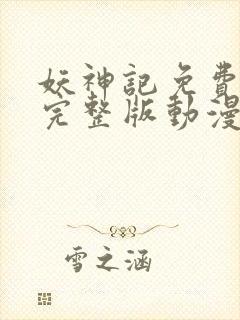 妖神記免費
完整版動漫
雪之涵